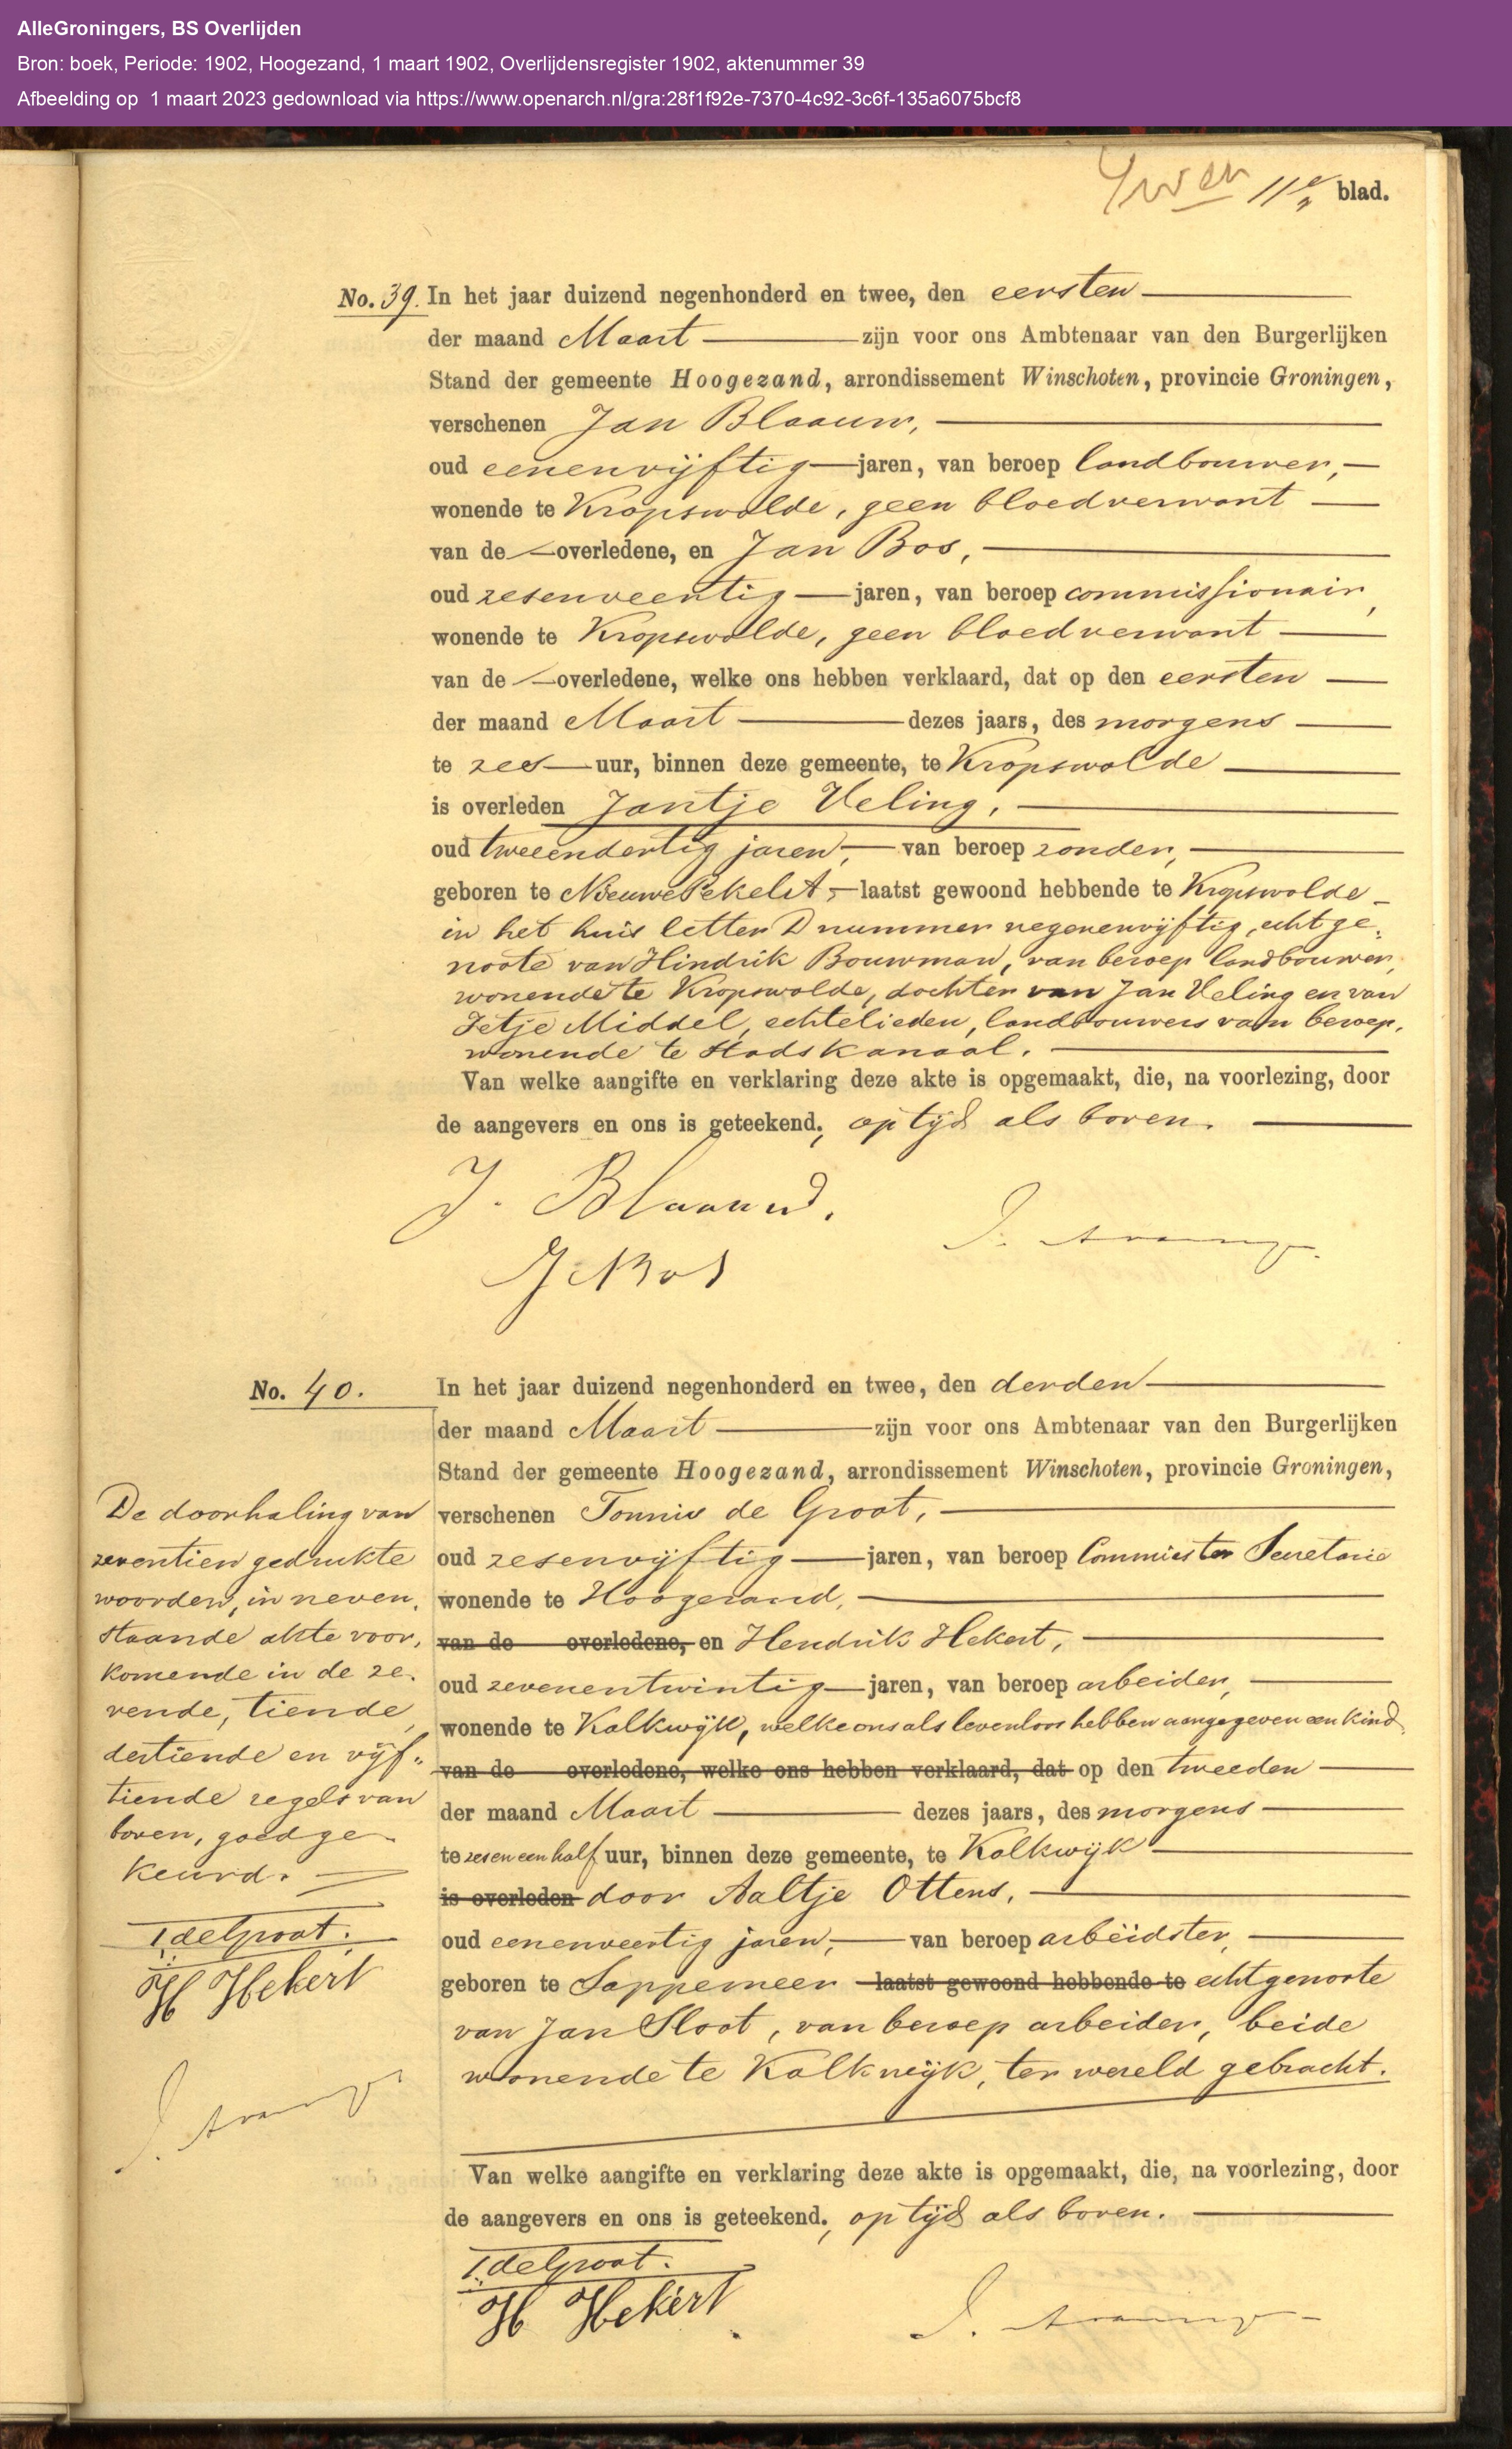 AlleGroningers, BS Overlijden
Bron: boek, Periode: 1902, Hoogezand, 1 maart 1902, Overlijdensregister 1902, aktenummer 39
Afbeelding op 1 maart 2023 gedownload via https://www.openarch.nl/gra:28f1f92e-7370-4c92-3c6f-135a6075bcf8
11e blad.
No. 39. In het jaar duizend negenhonderd en twee, den eersten
der maand Maart zijn voor ons Ambtenaar van den Burgerlijken
Stand der gemeente Hoogezand, arrondissement Winschoten, provincie Groningen,
verschenen Jan Blaauw,
oud eenenvijftig jaren, van beroep landbouwer,
wonende te Kropswolde, geen bloedverwant
van de overledene, en Jan Bos,
oud zesenveertig jaren, van beroep commissionair,
wonende te Kropswolde, geen bloedverwant
van de overledene, welke ons hebben verklaard, dat op den eersten
der maand Maart dezes jaars, des morgens
te zes uur, binnen deze gemeente, te Kropswolde
is overleden Jantje Veling,
oud tweeendertig jaren, van beroep zonder,
geboren te Nieuwe Pekela, laatst gewoond hebbende te Kropswolde
in het huis letter D nummer negenenvijftig, echtge-
noote van Hindrik Bouwman, van beroep landbouwer,
wonende te Kropswolde, dochter van Jan Veling en van
Jetje Middel, echtelieden, landbouwers van beroep,
wonende te Stadskanaal.
Van welke aangifte en verklaring deze akte is opgemaakt, die, na voorlezing, door
de aangevers en ons is geteekend, op tijd als boven.
J. Blaauw.
J Bos
No. 40. In het jaar duizend negenhonderd en twee, den derden
der maand Maart zijn voor ons Ambtenaar van den Burgerlijken
Stand der gemeente Hoogezand, arrondissement Winschoten, provincie Groningen,
verschenen Tonnis de Groot,
oud zesenvijftig jaren, van beroep Commies ter Secretarie
wonende te Hoogezand,
van de overledene, en Hendrik Hekert,
oud zevenentwintig jaren, van beroep arbeider,
wonende te Kalkwijk, welke ons als levenloos hebben aangegeven een kind
van de overledene, welke ons hebben verklaard, dat op den tweeden
der maand Maart dezes jaars, des morgens
te zes en een half uur, binnen deze gemeente, te Kalkwijk
is overleden door Aaltje Ottens,
oud eenenveertig jaren, van beroep arbeidster,
geboren te Sappemeer laatst gewoond hebbende te echtgenoote
van Jan Sloot, van beroep arbeider, beide
wonende te Kalkwijk, ter wereld gebracht.
Van welke aangifte en verklaring deze akte is opgemaakt, die, na voorlezing, door
de aangevers en ons is geteekend, op tijd als boven.
T. de Groot.
H Hekert
De doorhaling van
zeventien gedrukte
woorden, in neven-
staande akte voor-
komende in de ze-
vende, tiende,
dertiende en vijf-
tiende regels van
boven, goedge-
keurd.
T. de Groot.
H Hekert